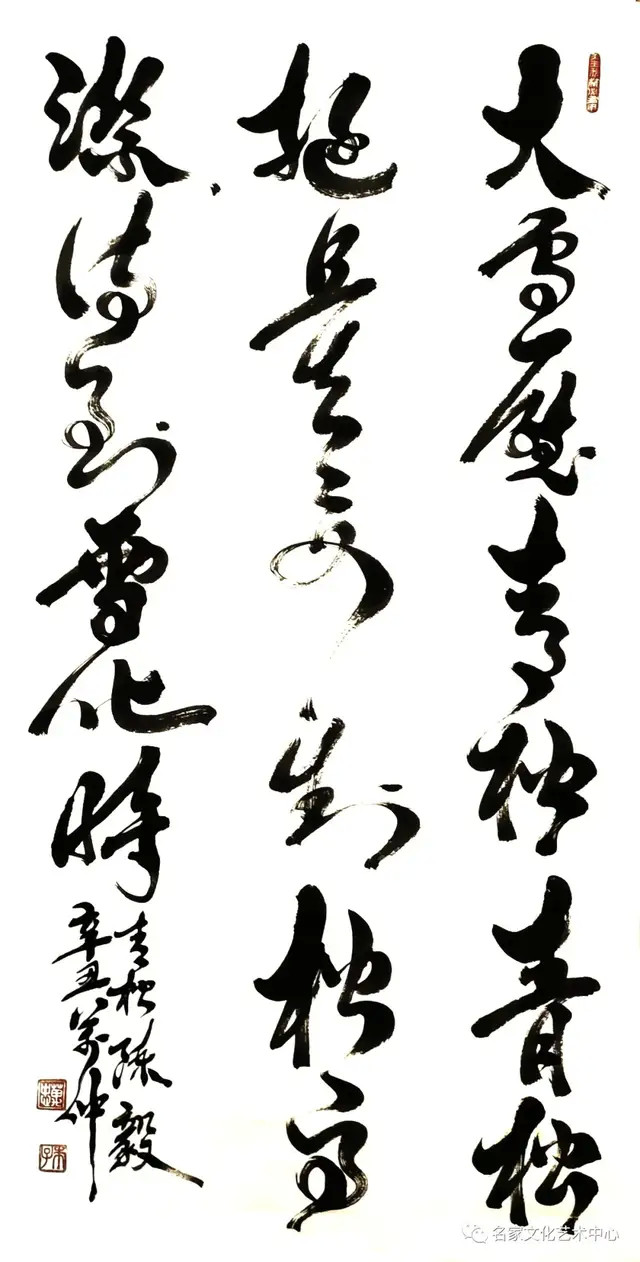 大雪壓青松青松
挺且直要知松高
潔待到雪化時
青松陳毅
辛丑萬仲
名家文化艺术中心